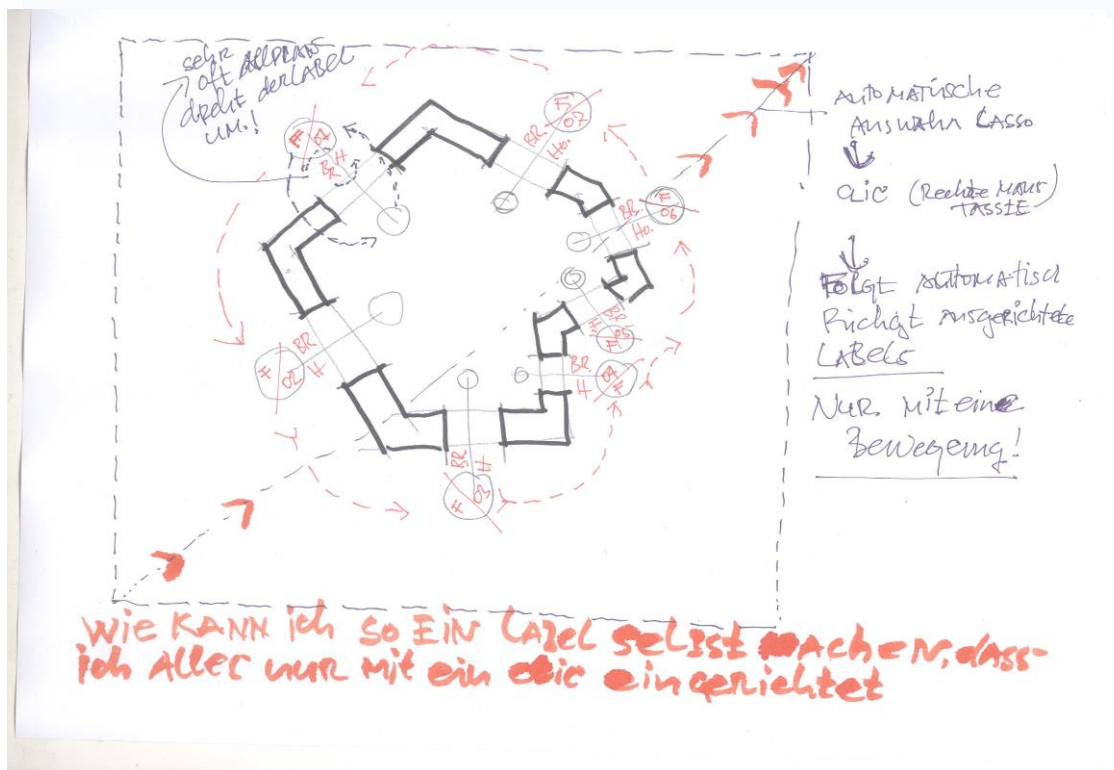 sehr
oft ALLPLAN
dreht der LABEL
UM.!
F
01
BR
H
F
07
BR.
Ho.
F
06
BR.
Ho.
BR.
H.
F
05
BR.
H
04
F
BR
H
F
03
BR
H
F
02
AUTOMATISCHE
AUSWAHL LASSO
CLIC (Rechte MAUS
TASSTE.)
FOLGT AUTOMATISCH
AUSGERICHTETE
LABELS
NUR MIT eine
Bewegung!
WIE KANN ich SO EIN LABEL SELBST MACHEN, dASS
ich ALLES NUR MIT ein clic eingerichtet